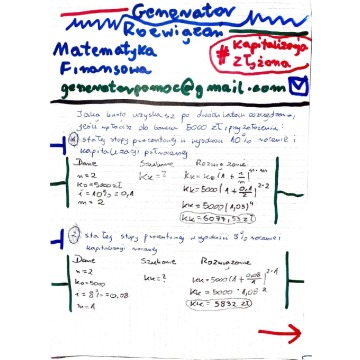 Generator
Rozwiązań
Matematyka
Finansowa
#Kapitalizacja
Złożona
generatorpomoc@gmail.com
Jaką kwotę uzyskasz po dwóch latach oszczędzania,
jeśli wpłacisz do banku 5000 zł przy założeniu:
1 stałej stopy procentowej w wysokości 10% rocznie i
kapitalizacji półrocznej
Dane Szukane Rozwiązanie
n=2 Kk=? Kk=Ko(1+i/m)^n·m
Ko=5000zł Kk=5000(1+0,1/2)^2·2
i=10%=0,1 Kk=5000(1,05)^4
m=2 Kk=6077,53zł
2 stałej stopy procentowej w wysokości 8% rocznie i
kapitalizacji rocznej
Dane Szukane Rozwiązanie
n=2 Kk=? Kk=5000(1+0,08/1)^2·1
Ko=5000 Kk=5000·1,08^2
i=8%=0,08 Kk=5832 zł
m=1